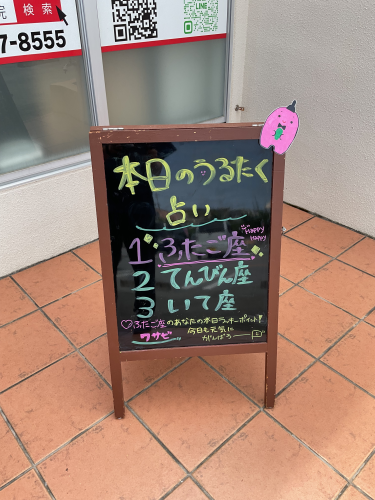 検索
7-8555
LINE
本日のうるたく
占い
Happy
Happy
1 ふたご座
2 てんびん座
3 いて座
♡ふたご座のあなたの本日ラッキーポイント!!
ワサビ
今日も元気に
がんばろー